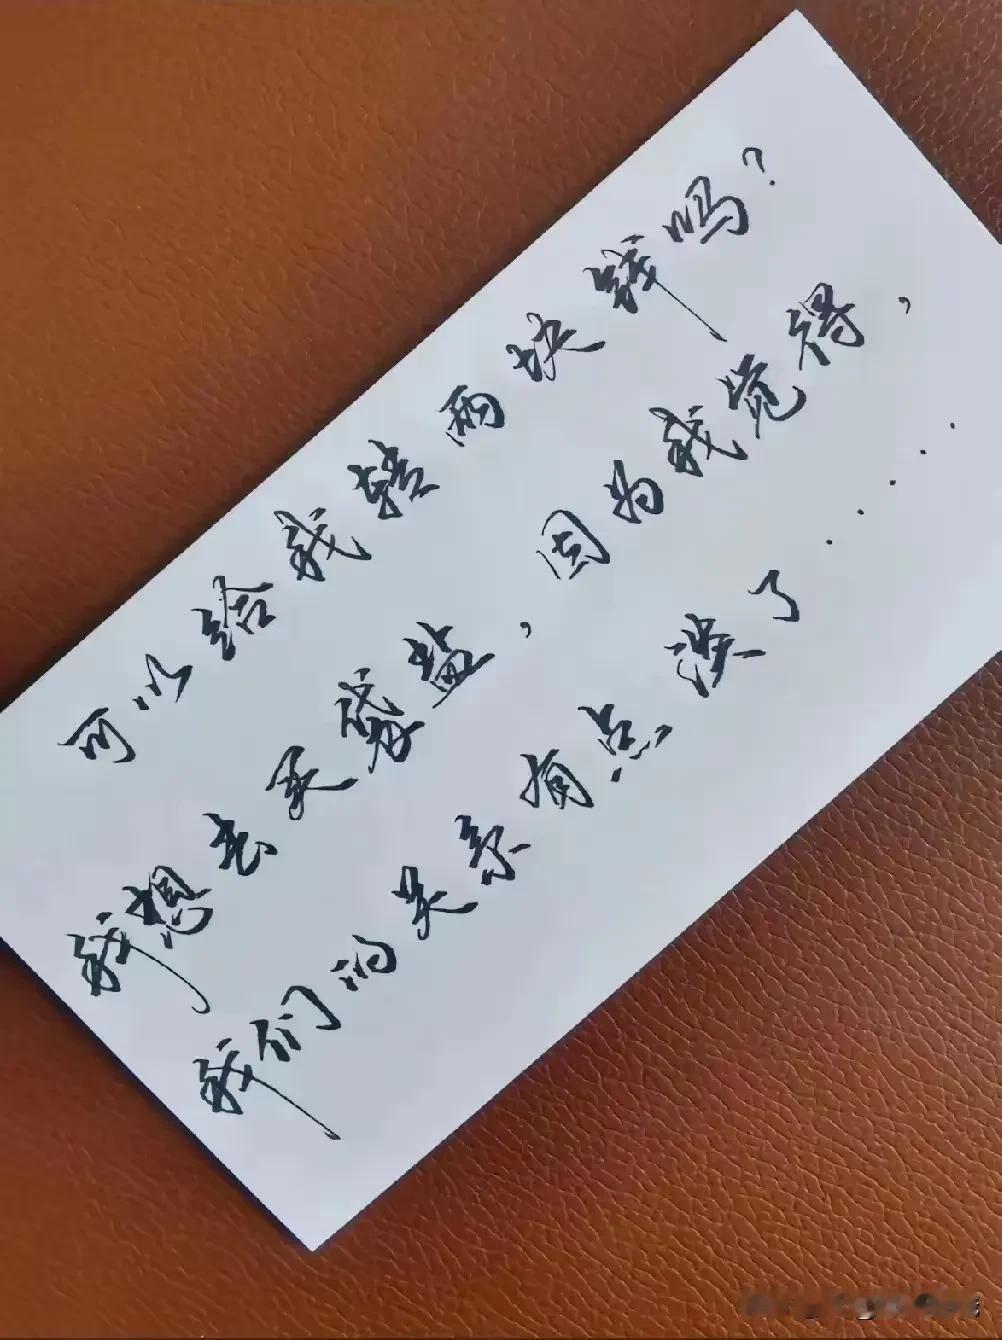 可以给我转两块钱吗?
我想去买袋盐,因为我觉得,
我们的关系有点淡了.....